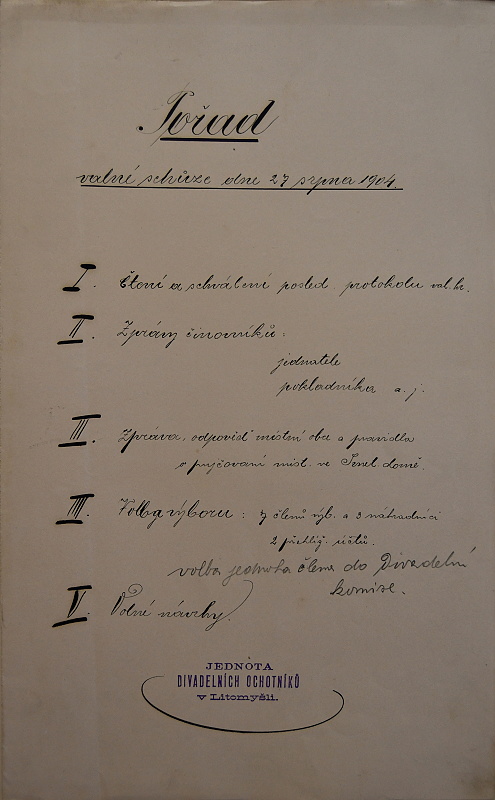 Pořad
valné schůze dne 27 srpna 1904.
I. Čtení a schválení posled protokolu val. hr.
II. Zprávy činovníků:
jednatele
pokladníka a. j.
III. Zpráva, odpověď místní obce a pravidla
o půjčování míst. ve Smet. domě.
IIII. Volba výboru: 7 členů výb. a 3 náhradníci
2 přehlíž. účtů.
volba jednoho člena do Divadelní
komise.
V. Volné návrhy.
JEDNOTA
DIVADELNÍCH OCHOTNÍKŮ
v Litomyšli.